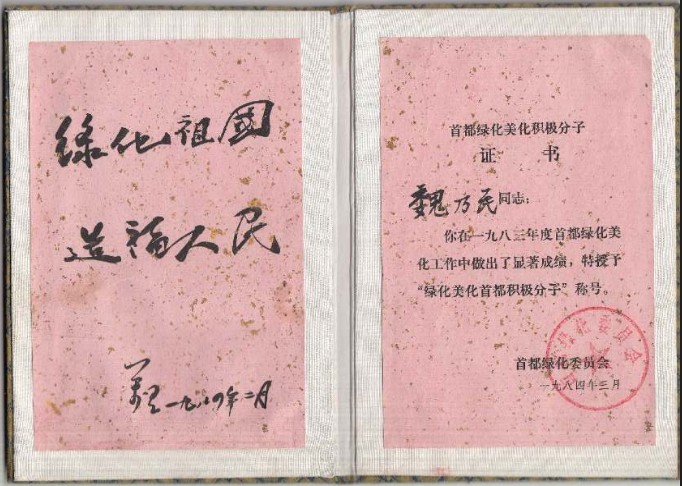 绿化祖國
造福人民
萬里一九八四年二月
首都绿化美化积极分子
证 书
魏乃民同志:
你在一九八三年度首都绿化美
化工作中做出了显著成绩，特授予
“绿化美化首都积极分子”称号。
首都绿化委员会
一九八四年三月
绿化委员会